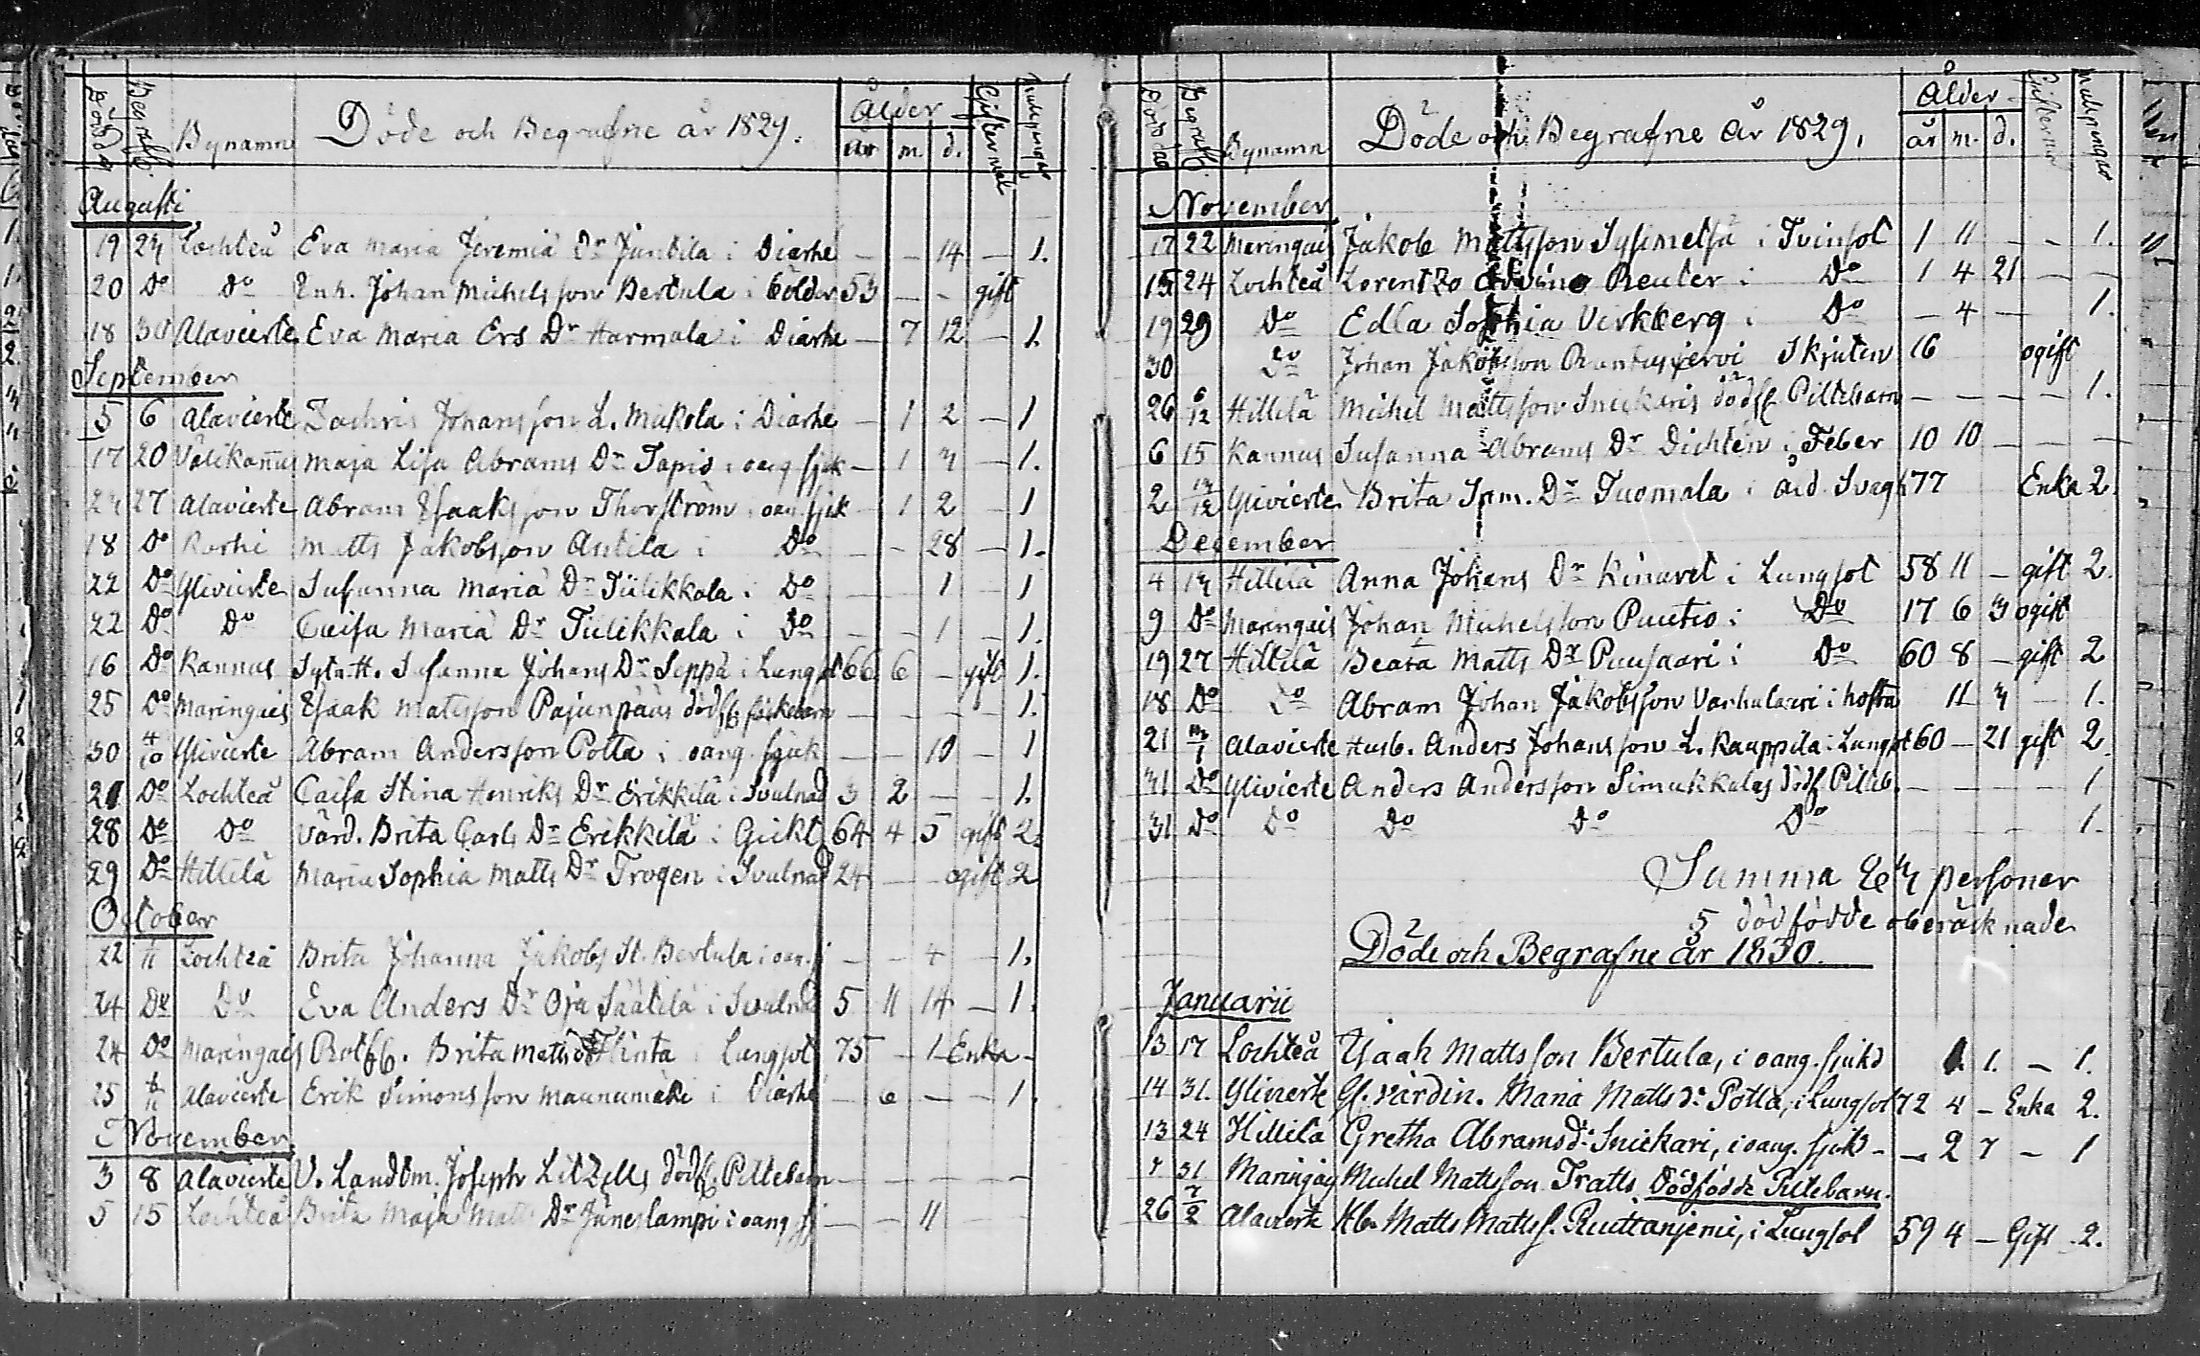 Döde och Begrafne år 1829.
Bynamn Ålder år m. d.
Augusti
19 24 Lochteå Eva Maria Jeremiä Dr Juntila i Diarhe - - 14 - 1.
20 Do Do Enh. Johan Michelsson Bertula i 53 - - gift
18 30 Alavierte Eva Maria Ers Dr Harmala i Diarhe - 7 12 - 1.
September
5 6 Alavierte Zachris Johansson L. Mickola i Diarhe - 1 2 - 1
17 20 Välikannus Maja Lisa Abrams Dr Tapio i oang sjuk - 1 3 - 1.
23 27 Alavierte Abram Esaaksson Thorström i oan. sjuk - 1 2 - 1
18 Do Matts Jakobsson Antila i Do - - 28 - 1.
22 Do Ylivierte Susanna Maria Dr Tiilikkala i Do - - 1 1
22 Do Do Caisa Maria Dr Tiilikkala i Do - - 1 - 1.
16 Do Kannus Sytn.H. Susanna Johans Dr Seppä i Lungsot 66 6 - gift 1.
25 Do Maringais Esaak Matsson Pajunpääs dödf - - - - 1.
30 4/10 Ylivierte Abram Andersson Potta i oang. sjuk - - 10 - 1
21 Do Lochteå Caisa Stina Henriks Dr Erikkilä i Svulnad 3 2 - - 1.
28 Do Do Värd. Brita Carls Dr Erikkilä i Gickt 64 4 5 gift 2.
29 Do Hillilä Maria Sophia Matts Dr Trogen i Svulnad 24 - - ogift 2
October
22 Lochteå Brita Johanna Jakobs Bertula i oan. - - 4 - 1.
24 Do Do Eva Anders Dr Oja Säätilä i Svulnad 5 11 14 - 1.
24 Do Maringais Brita Matts Dr Flinta i Lungsot 75 - 1 Enka -
25 Alavierte Erik Simonsson Maunumäki i Diarhe - 6 - - 1.
November
3 8 Alavierte V. Landtm. Joseph Litzells dödf. Piltebarn - - - -
5 15 Lochteå Brita Maja Matts Dr Jäneslampi i oang sj - - 11
Döde och Begrafne år 1829.
Bynamn Ålder år m. d.
November
17 22 Maringais Jakob Mattsson Sysimetsä i Tvinsot 1 11 - - 1.
15 24 Lochteå Reuter i Do 1 4 21 - -
19 29 Do Edla Sophia Verkberg i Do - 4 - 1.
30 Do Johan Jakobsson Rantusjervi Skjuten 16 ogift
26 6/12 Hillilä Michel Mattsson Snickaris dödf Piltebarn - - - - 1.
6 15 Kannus Susanna Abrams Dr Dichtén i Feber 10 10 - - -
2 13/12 Ylivierte Brita Sam. Dr Tuomala i 77 Enka 2.
December
4 13 Hillilä Anna Johans Dr Kinaret i Lungsot 58 11 - gift 2.
9 Do Maringais Johan Michelsson Puutio i Do 17 6 3 ogift
19 27 Hillilä Beata Matts Dr Puusaari i Do 60 8 - gift 2
18 Do Do Abram Johan Jakobsson Varhulaxri i hosta 11 3 - 1.
21 Alavierte Husb. Anders Johansson L. Kauppila i Lungsot 60 - 21 gift 2
31 Do Ylivierte Anders Andersson Simukkalas dödf Piltb. - - - - 1
31 Do Do Do Do Do - - - - 1.
Summa personer
5 dödfödde oberäcknade
Döde och Begrafne år 1830.
Januarii
13 17 Lochteå Esaak Mattsson Bertula, i oang. sjukd 1. - 1.
14 31. Ylivierte Gl. värdin. Maria Matts dr Potta, i Lungsot 72 4 - Enka 2.
13 24 Hillilä Gretha Abrams dr Snickari, i oang. sjukd - - 2 7 - 1
7 31 Maringais Michel Mattsson Tratts Dödfödde Piltebarn.
26 7/2 Alavierte Matts Mattss. Ruuttanjemi, i Lungsot 59 4 - Gift 2.